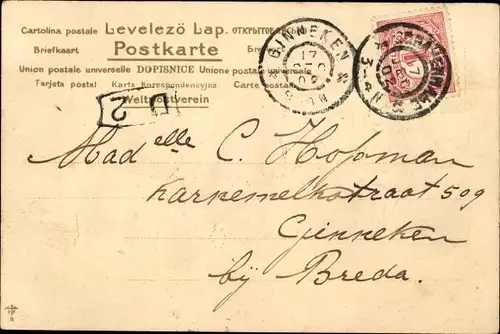 Cartolina postale Levelező Lap. ОТКРЫТОЕ
Briefkaart Postkarte
Union postale universelle DOPISNICE Unione postale universale
Tarjeta postal Karta Korespondencyjna Carte postale
Weltpostverein
GINNEKEN
17
S'GRAVENHAGE
17
3-4N
D
2
Mad elle C. Hopman
Karnemelkstraat 509
Ginneken
bij Breda.